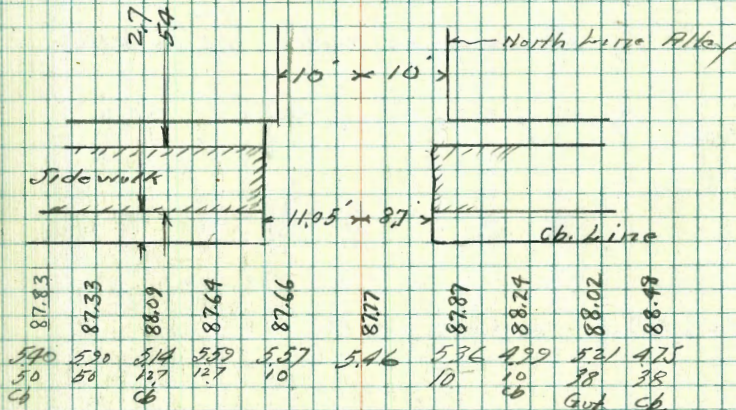 2.7
5.4
North Line Alley
10' × 10'
Sidewalk
11.05' × 8.7'
Cb. Line
87.83 87.33 88.09 87.64 87.66 87.77 87.87 88.24 88.02 88.48
540 590 514 559 5.57 5.46 5.36 499 521 475
50 50 127 127 10 10 10 38 38
Cb Cb Cb Gut Cb